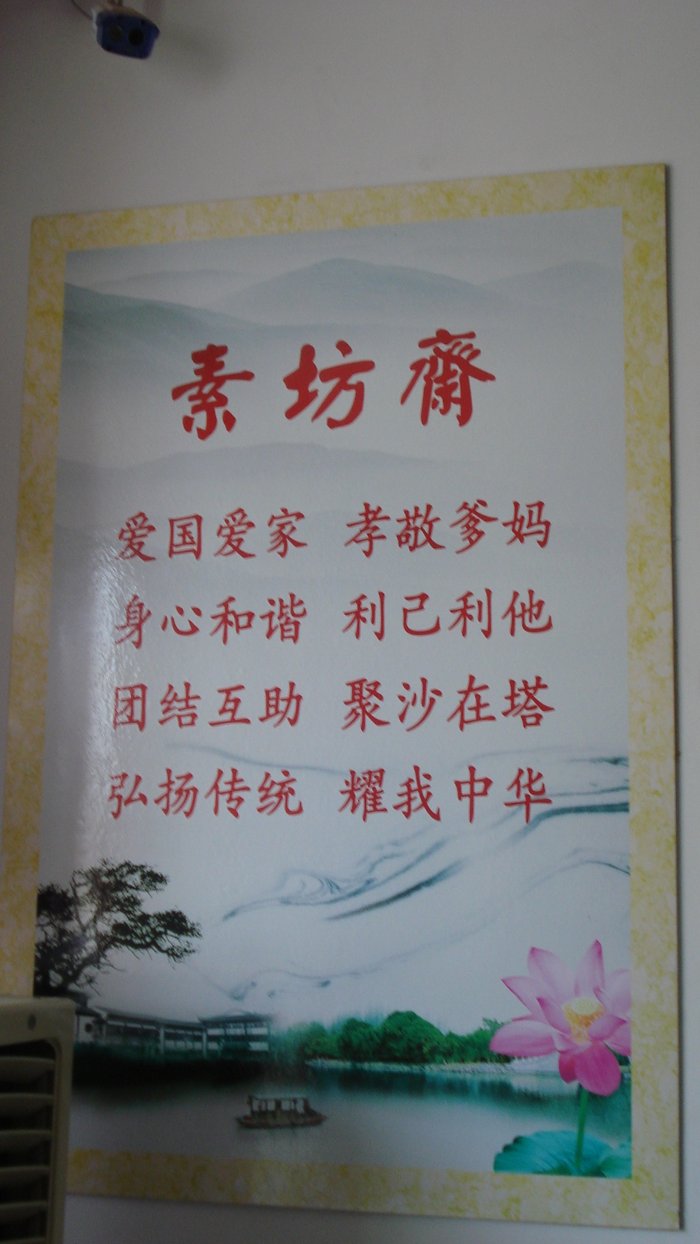 素坊齋
爱国爱家 孝敬爹妈
身心和谐 利己利他
团结互助 聚沙在塔
弘扬传统 耀我中华